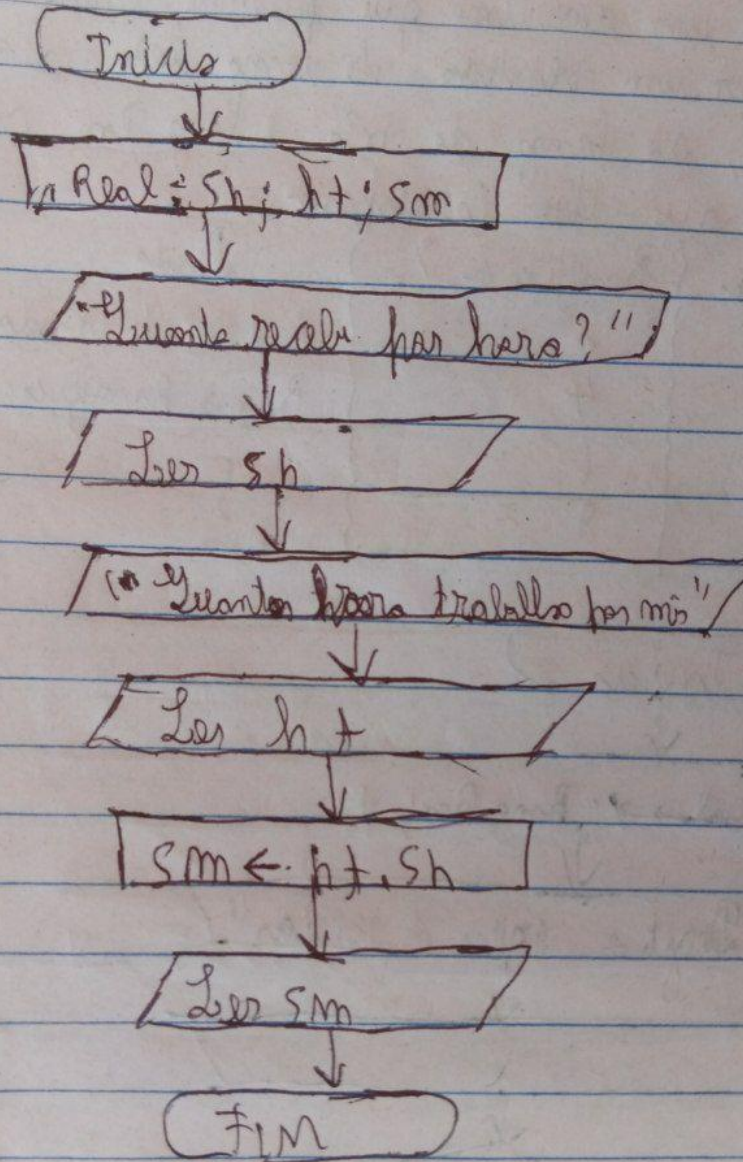 Inicio
Real: Sh; ht; Sm
"Quanto recebe por hora?"
Ler Sh
"Quantas horas trabalha por mês"
Ler ht
Sm ← ht . Sh
Ler Sm
FIM